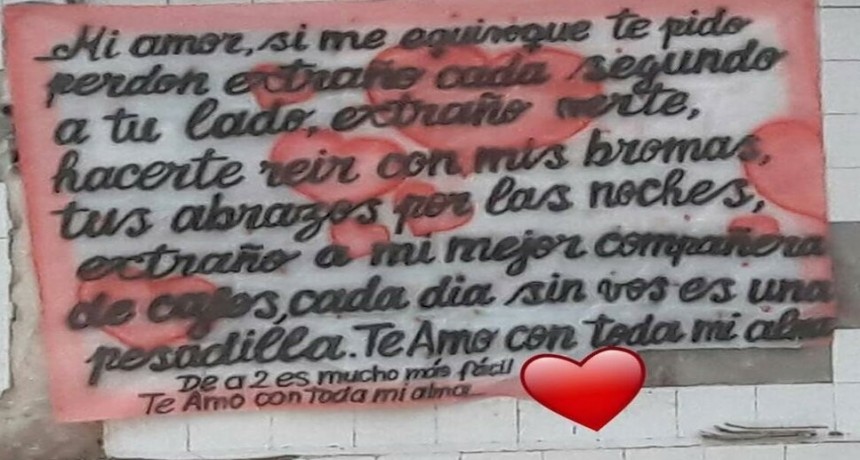 Mi amor, si me equivoque te pido
perdon extraño cada segundo
a tu lado, extraño verte,
hacerte reir con mis bromas,
tus abrazos por las noches,
extraño a mi mejor compañera
de cafes, cada dia sin vos es una
pesadilla. Te Amo con toda mi alma
De a 2 es mucho más fácil
Te Amo con Toda mi alma...